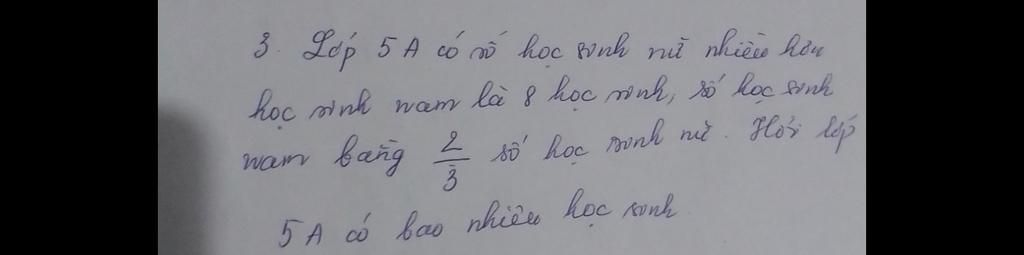 3. Lớp 5A có số học sinh nữ nhiều hơn
học sinh nam là 8 học sinh, số học sinh
nam bằng 2/3 số học sinh nữ. Hỏi lớp
5A có bao nhiêu học sinh